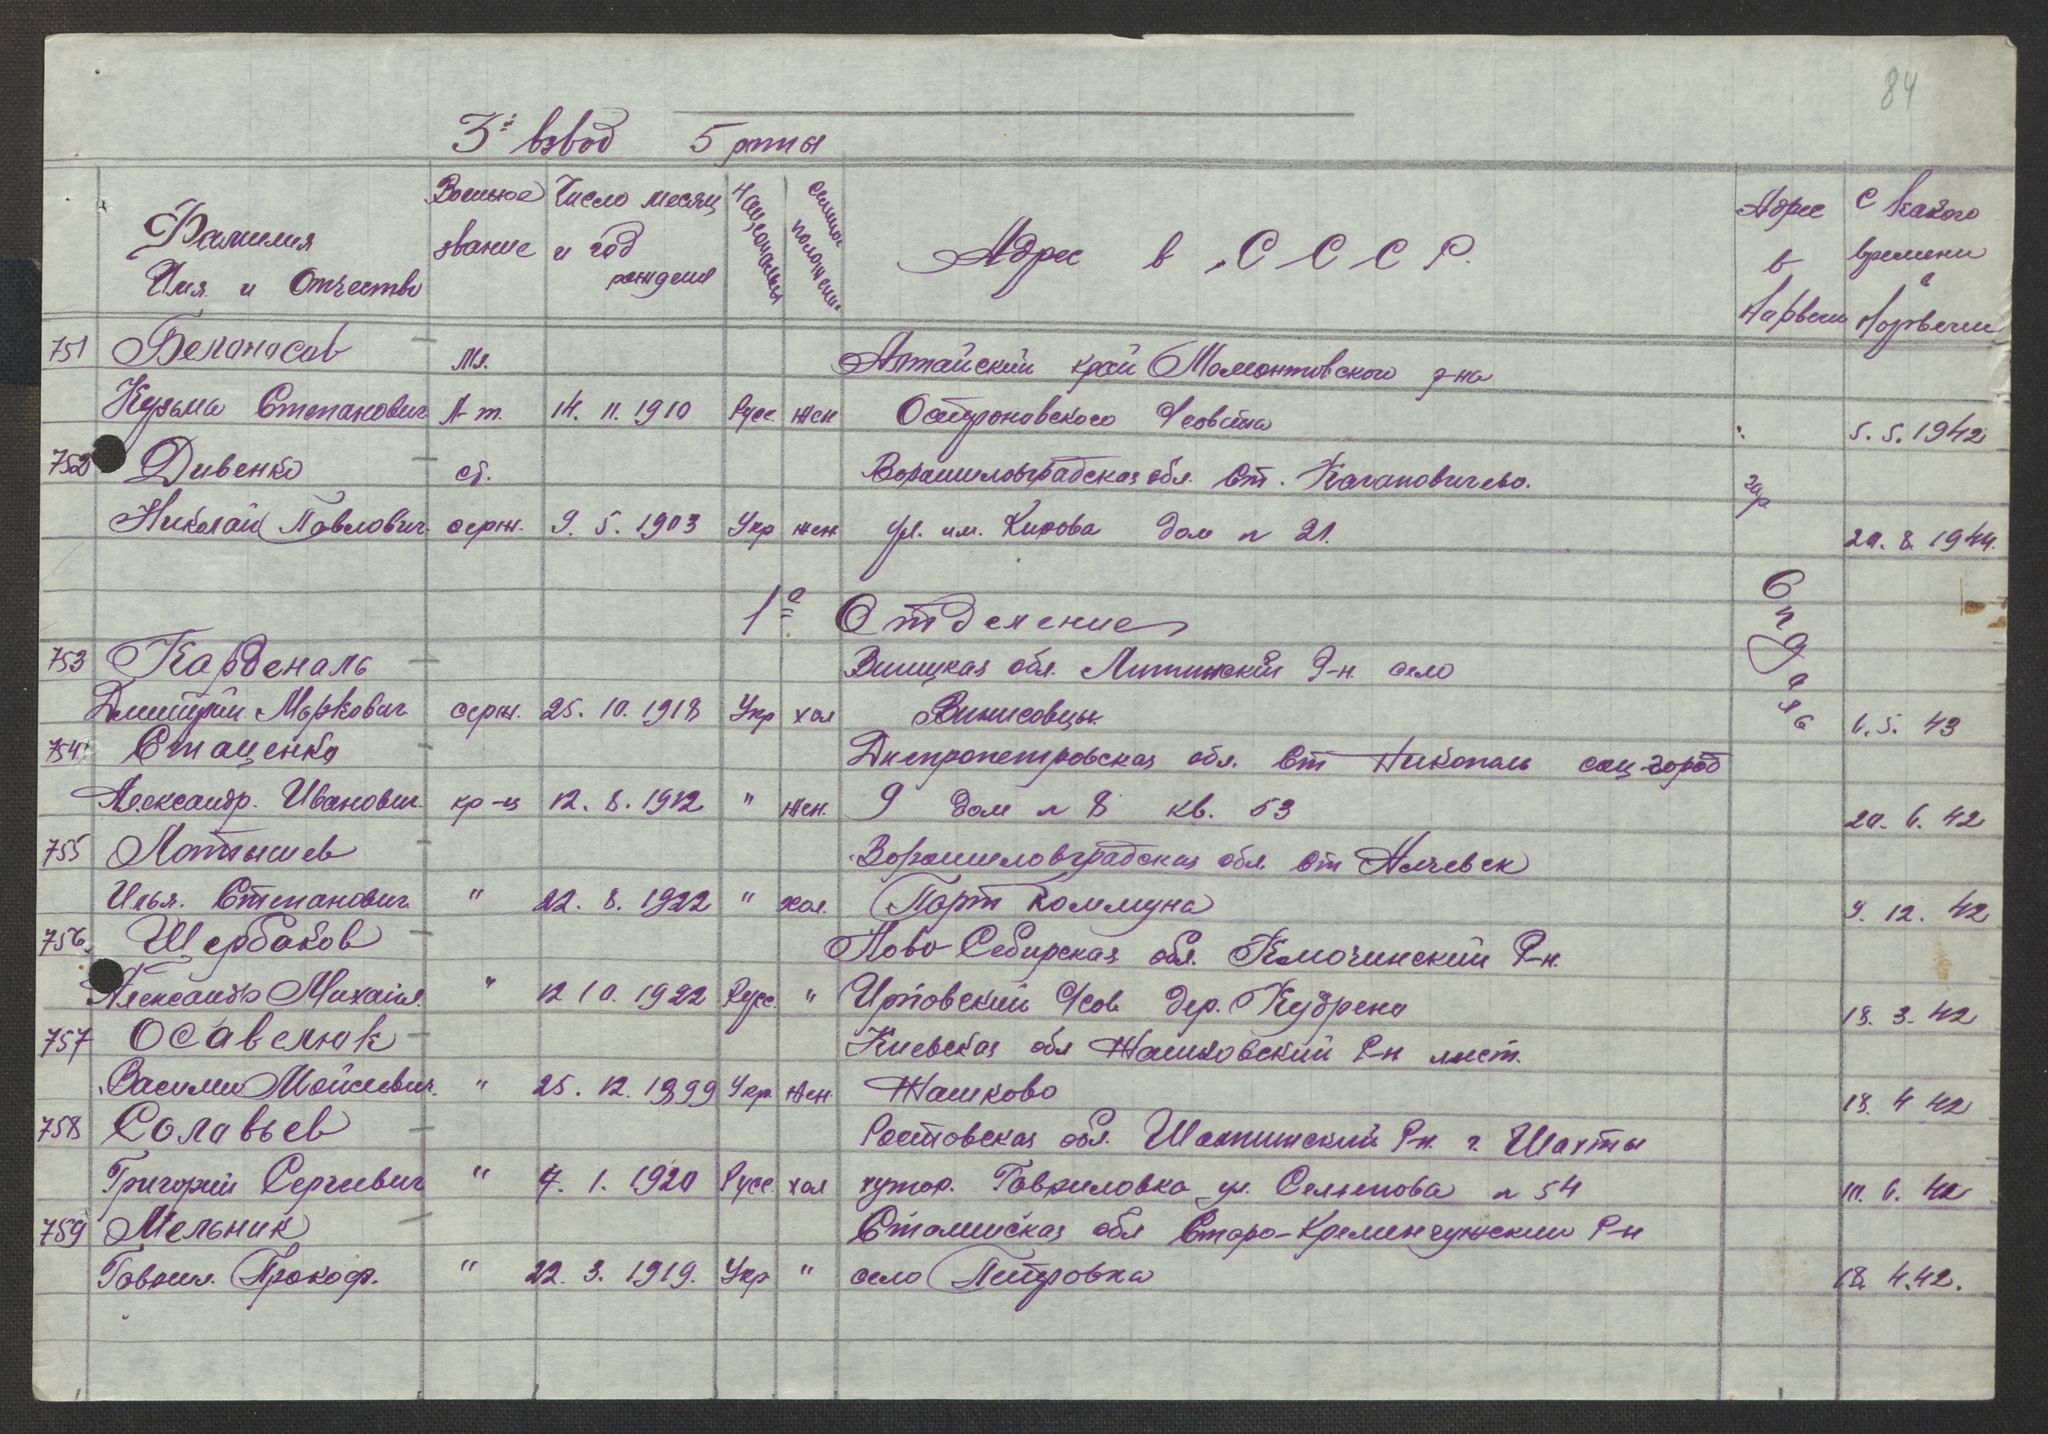 84
3й взвод 5 роты
Фамилия Имя и Отчество
Военное звание
Число месяц и год рождения
Национальн
Семейное положение
Адрес в С С С Р.
Адрес в Норвегии
С какого времени в Норвегии
751 Белоносов мл. Алтайский край Мамонтовского р-на
Кузьма Степанович л-т. 14. 11. 1910 Русс. жен Островновского с/совета " 5. 5. 1942
752 Дивенко ст. Ворошиловградская обл. Ст. Кагановичево.
Николай Павлович серж. 9. 5. 1903 Укр жен ул. им. Кирова дом № 21. гор 20. 8. 1944.
1е Отделение
Опдаль
753 Карденаль Виницкая обл. Литинский Р-н. село
Дмитрий Маркович серж. 25. 10. 1918 Укр хол 6. 5. 43
754 Стаценко Днепропетровская обл. Ст Никополь соц-город
Александр. Иванович. кр-ц 12. 8. 1912 " жен. 9 дом № 8 кв. 53 20. 6. 42
755 Латышев Ворошиловградская обл. Ст Алчевск
Илья. Степанович. " 22. 8. 1922 " хол. Парт Коммуна 9. 12. 42
756. Щербаков Ново Себирская обл. Р-н.
Александр Михаил. " 12 10. 1922 Русс. " с/сов дер. 18. 3. 42
757 Осавелюк Киевская обл Жашковский Р-н мест.
Василий Мойсеевич. " 25. 12. 1899 Укр. жен. Жашково 18. 4 42
758 Соловьев Ростовская обл. Шахтинский Р-н. г. Шахты
Григорий Сергеевич " 7. 1. 1920 Русс. хол хутор. Гавриловка ул. № 54 10. 6. 42
759 Мельник обл Старо-Кременчужский Р-н
Гаврил. Прокоф. " 22. 3. 1919. Укр " село Петровка 18. 4. 42.